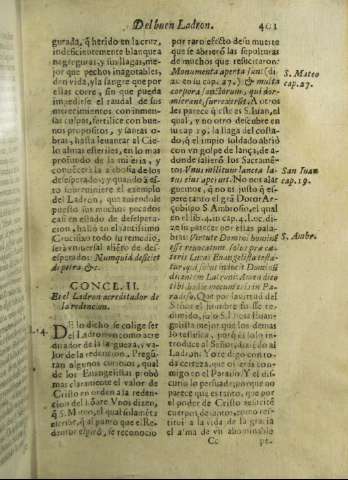 Del buen Ladron. 401
gurada, q̃ herido en la cruz,
indeficientemente blanquea
negreguras, y sus llagas, me-
jor que pechos inagotables,
dan vida, y la sangre que por
ellas corre, sin que pueda
impedirse el raudal de sus
merecimientos con inmen-
sas culpas, fertilice con bue-
nos propositos, y santas o-
bras, hasta levantar al Cie-
lo almas esteriles, en lo mas
profundo de la miseria, y
conociesse la
desesperados; y quando
to sobreminiere el exemplo
del Ladron, que
puesto sus muchos pecados
casi en estado de desespera-
cion, halló en el santissimo
Crucifixo todo su remedio,
será universal alivio de des-
esperados: Numquid deficiet
de petra &c.
CONCE. II.
Es el Ladron acreditador de
la redencion.
DE lo dicho se colige ser
el Ladron como acre
ditador de la largueza, y va-
lor de la redencion. Pregũ-
tan algunos curiosos, qual
de los Euangelistas probó
mas claramente el valor de
Cristo en orden a la reden-
cion del hõbre. Vnos dizen,
q̃ S. Mateo, el qual solamẽte
escribe, q̃ al punto que el Re-
dentor espiró, se reconocio
por raro efecto de su muerte
que se abrieron las sepolturas
de muchos que resucitaron:
Monumenta aperta sunt (di-
ze en su cap. 27.) & multa
corpora sanctorum, qui dor-
mierant, surrexerunt. A otros
les parece q̃ este es S. Iuan, el
qual, y no otro descubre en
su cap. 19. la llaga del costa-
do, q̃ el impio soldado abrió
con vn golpe de lança, de a-
donde salierõ los Sacramẽ-
tos Vnus militum lancea la-
tus eius aperuit. No nos alar
guemos, q̃ no es justo q̃ es-
pere tanto el grã Dotor Ar-
çobispo S. Ambrosio, el qual
en el lib. 4. in cap. 4. Luc. di-
ze su parecer por estas pala-
bras: Virtute Domini hominẽ
esse revocatum solus præ cæ-
teris Lucas Euangelista testa-
tur, qui solus inducit Dominũ
dicentem Latroni: Amen dico
tibi, hodie mecum eris in Pa-
radiso. Que por la virtud del
Señor el hombre fuesse re-
dimido, solo S. Lucas Euan-
gelista mejor que los demas
lo testifica, porq̃ es solo in-
troduce al Señor, diziẽdo al
Ladron: Yo te digo con to-
da certeza, que oy serás con-
migo en el Paraiso. Y el dis-
curso lo persuade, porque no
parece que es tanto, que por
el poder de Cristo resucitẽ
cuerpos de santos, como res-
titui a la vida de la gracia
el alma de vn abominable
Cc pe-
S. Mateo
cap. 27.
San Iuan
cap. 19.
S. Ambr.